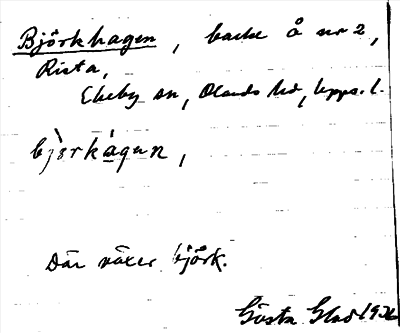 Björkhagen, backe å nr 2,
Rista,
Ekeby sn, Olands hd, Upps. l.
bjòrkágen,
Där växer björk.
Gösta Glad 1926